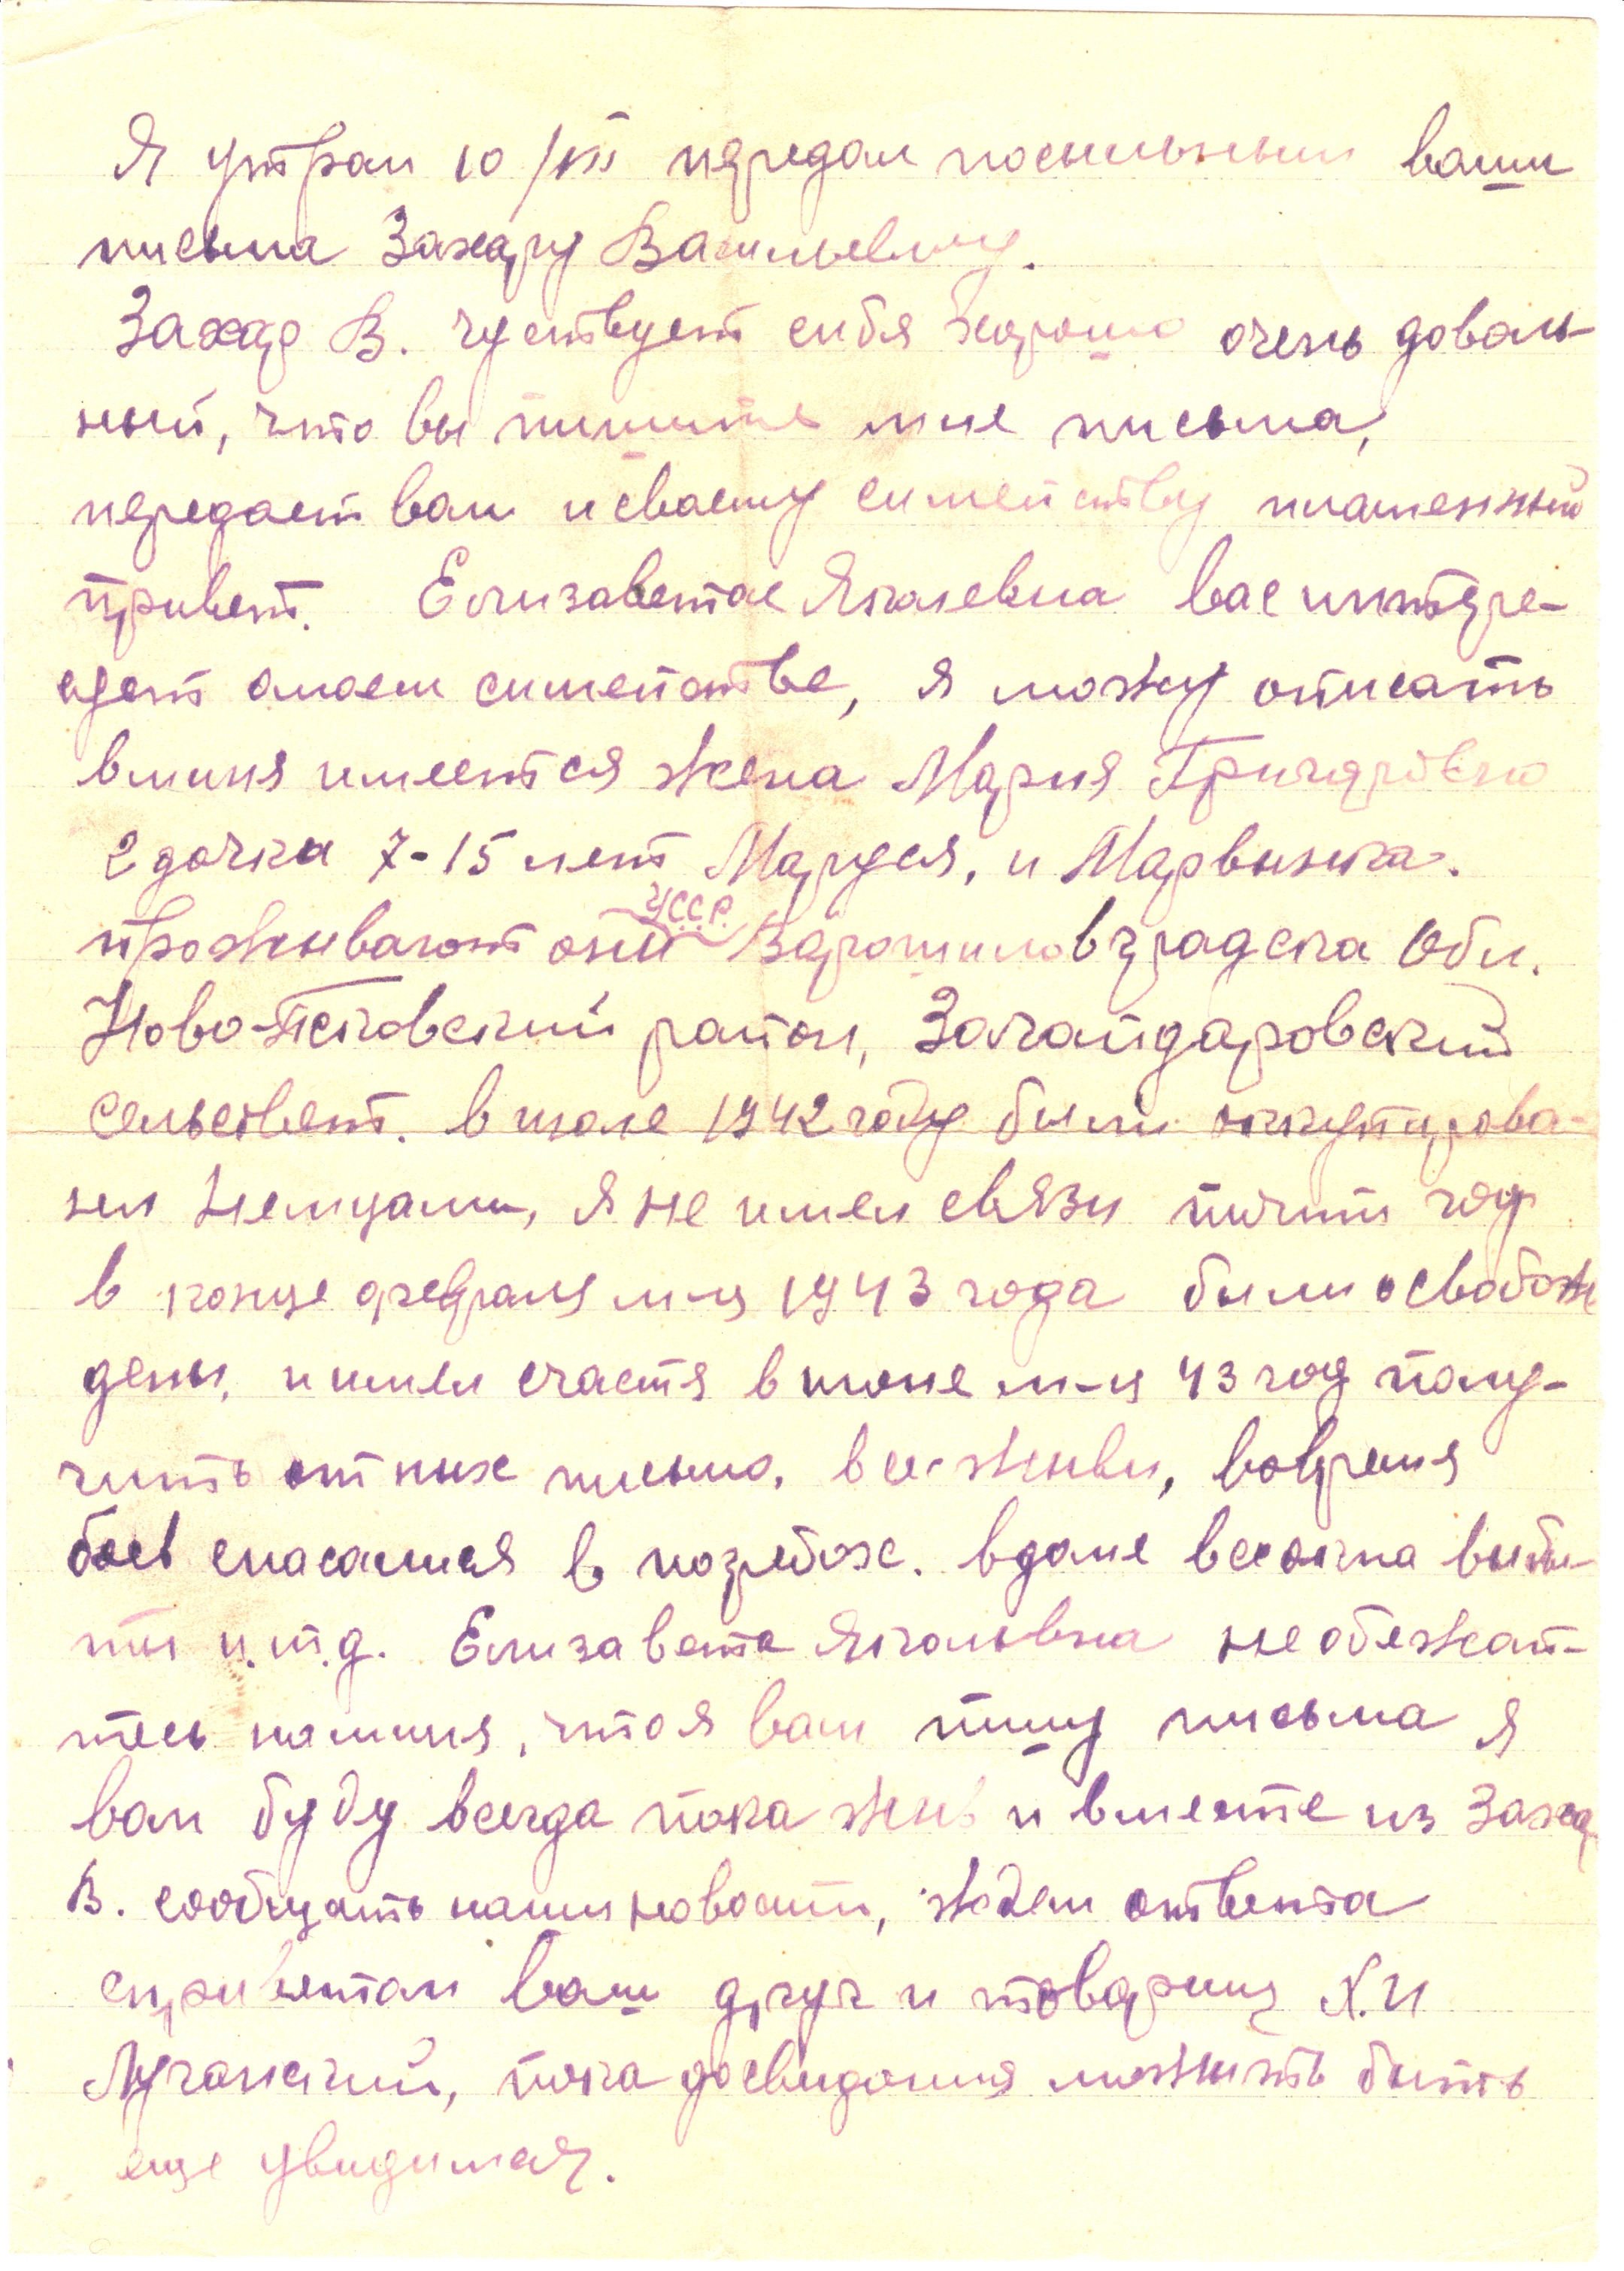 Я утрам 10/VIII передал посыльным ваши
письма Захару Васильевичу.
Захар В. чуствует сибя хорошо очень доволь-
ный, что вы пишите мне письма,
передает вам и сваему симейству пламенный
привет. Елизавета Яковлевна вас интере-
сует о моем симействе, я можу описать
в миня имеется жена Мария Григоровна
2 дочки 7-15 лет Маруся, и Марвинка.
проживают они УССР Ворошиловградска Обл.
Ново-Псковский район, Закайдаровский
сельсовет. в июле 1942 году были оккупирова-
ны Немцами, я не имел связи почти год
в конце февраля м-ця 1943 года были освобож
дены, и имел счастя в июне м-ця 43 год полу-
чить от них письмо, все живы, вовремя
боев спасались в погребах. в доме все окна выби-
ты и.т.д. Елизавета Яковлевна не обежай-
тесь на миня, что я вам пишу письма я
вам буду всегда пока жив и вместе из Захар
В. сообщать наши новости, ждем ответа
с приветом ваш друг и товарищ Х.И
Луганский, пока досвидония можить быть
еще увидимся.